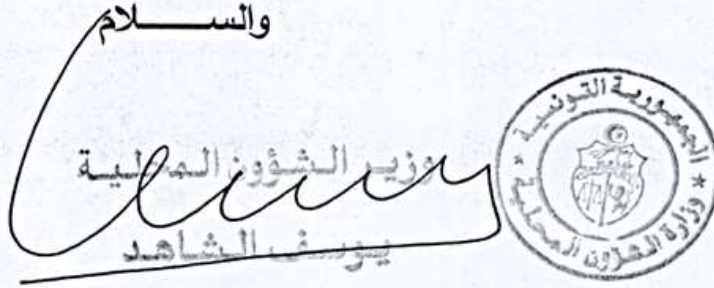 والســـــلام
وزير الشؤون المحلية
يوسف الشاهد
الجمهورية التونسية
* وزارة الشؤون المحلية *